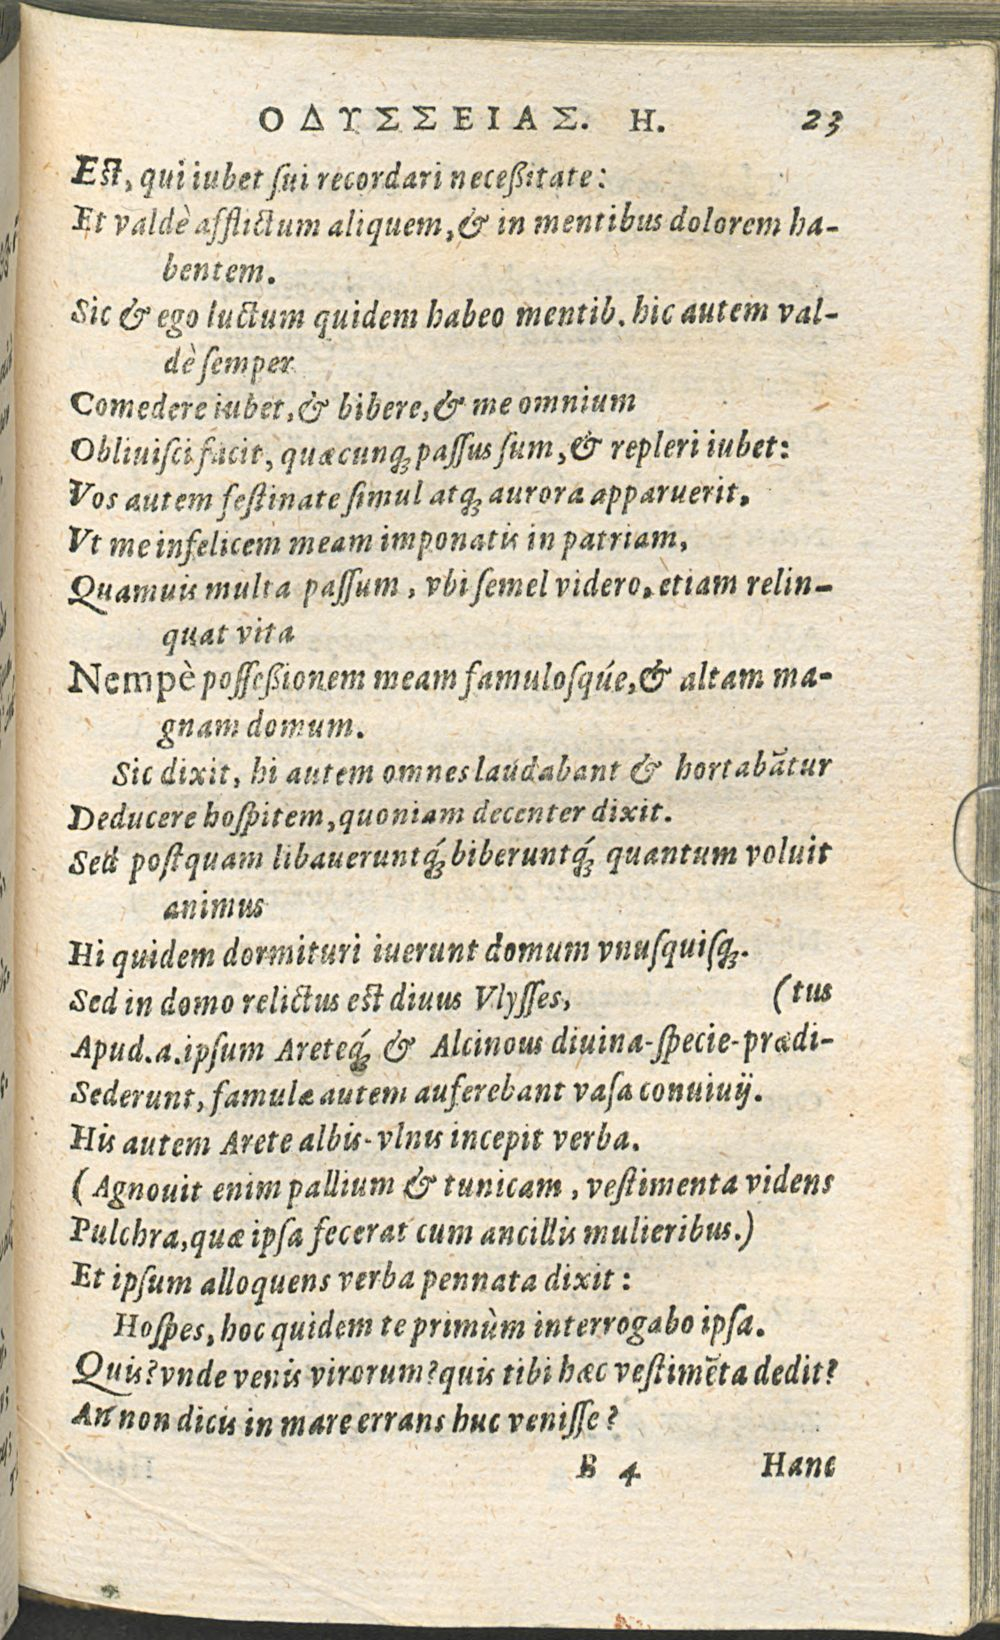 ΟΔΥΣΣΕΙΑΣ. Η. 23
Est, qui iubet ſui recordari neceßitate:
Et valdè afflictum aliquem, & in mentibus dolorem ha-
bentem.
Sic & ego luctum quidem habeo mentib. hic autem val-
dè ſemper
Comedere iubet, & bibere, & me omnium
Obliuiſci facit, quæcunq́; paſſus ſum, & repleri iubet:
Vos autem feſtinate ſimul atq; aurora apparuerit,
Vt me infelicem meam imponatis in patriam,
Quamuis multa paſſum, vbi ſemel videro, etiam relin-
quat vita
Nempè poſſeßionem meam famuloſqúe, & altam ma-
gnam domum.
Sic dixit, hi autem omnes laudabant & hortabātur
Deducere hoſpitem, quoniam decenter dixit.
Sed poſtquam libaueruntq́; biberuntq́; quantum voluit
animus
Hi quidem dormituri iuerunt domum vnuſquiſq;.
Sed in domo relictus est diuus Vlyſſes, (tus
Apud.a.ipſum Areteq́; & Alcinous diuina-ſpecie-prædi-
Sederunt, famulæ autem auferebant vaſa conuiuij.
His autem Arete albis-vlnis incepit verba.
(Agnouit enim pallium & tunicam, veſtimenta videns
Pulchra, quæ ipſa fecerat cum ancillis mulieribus.)
Et ipſum alloquens verba pennata dixit:
Hoſpes, hoc quidem te primùm interrogabo ipſa.
Quis? vnde venis virorum? quis tibi hæc veſtimēta dedit?
An non dicis in mare errans huc veniſſe?
B 4 Hanc